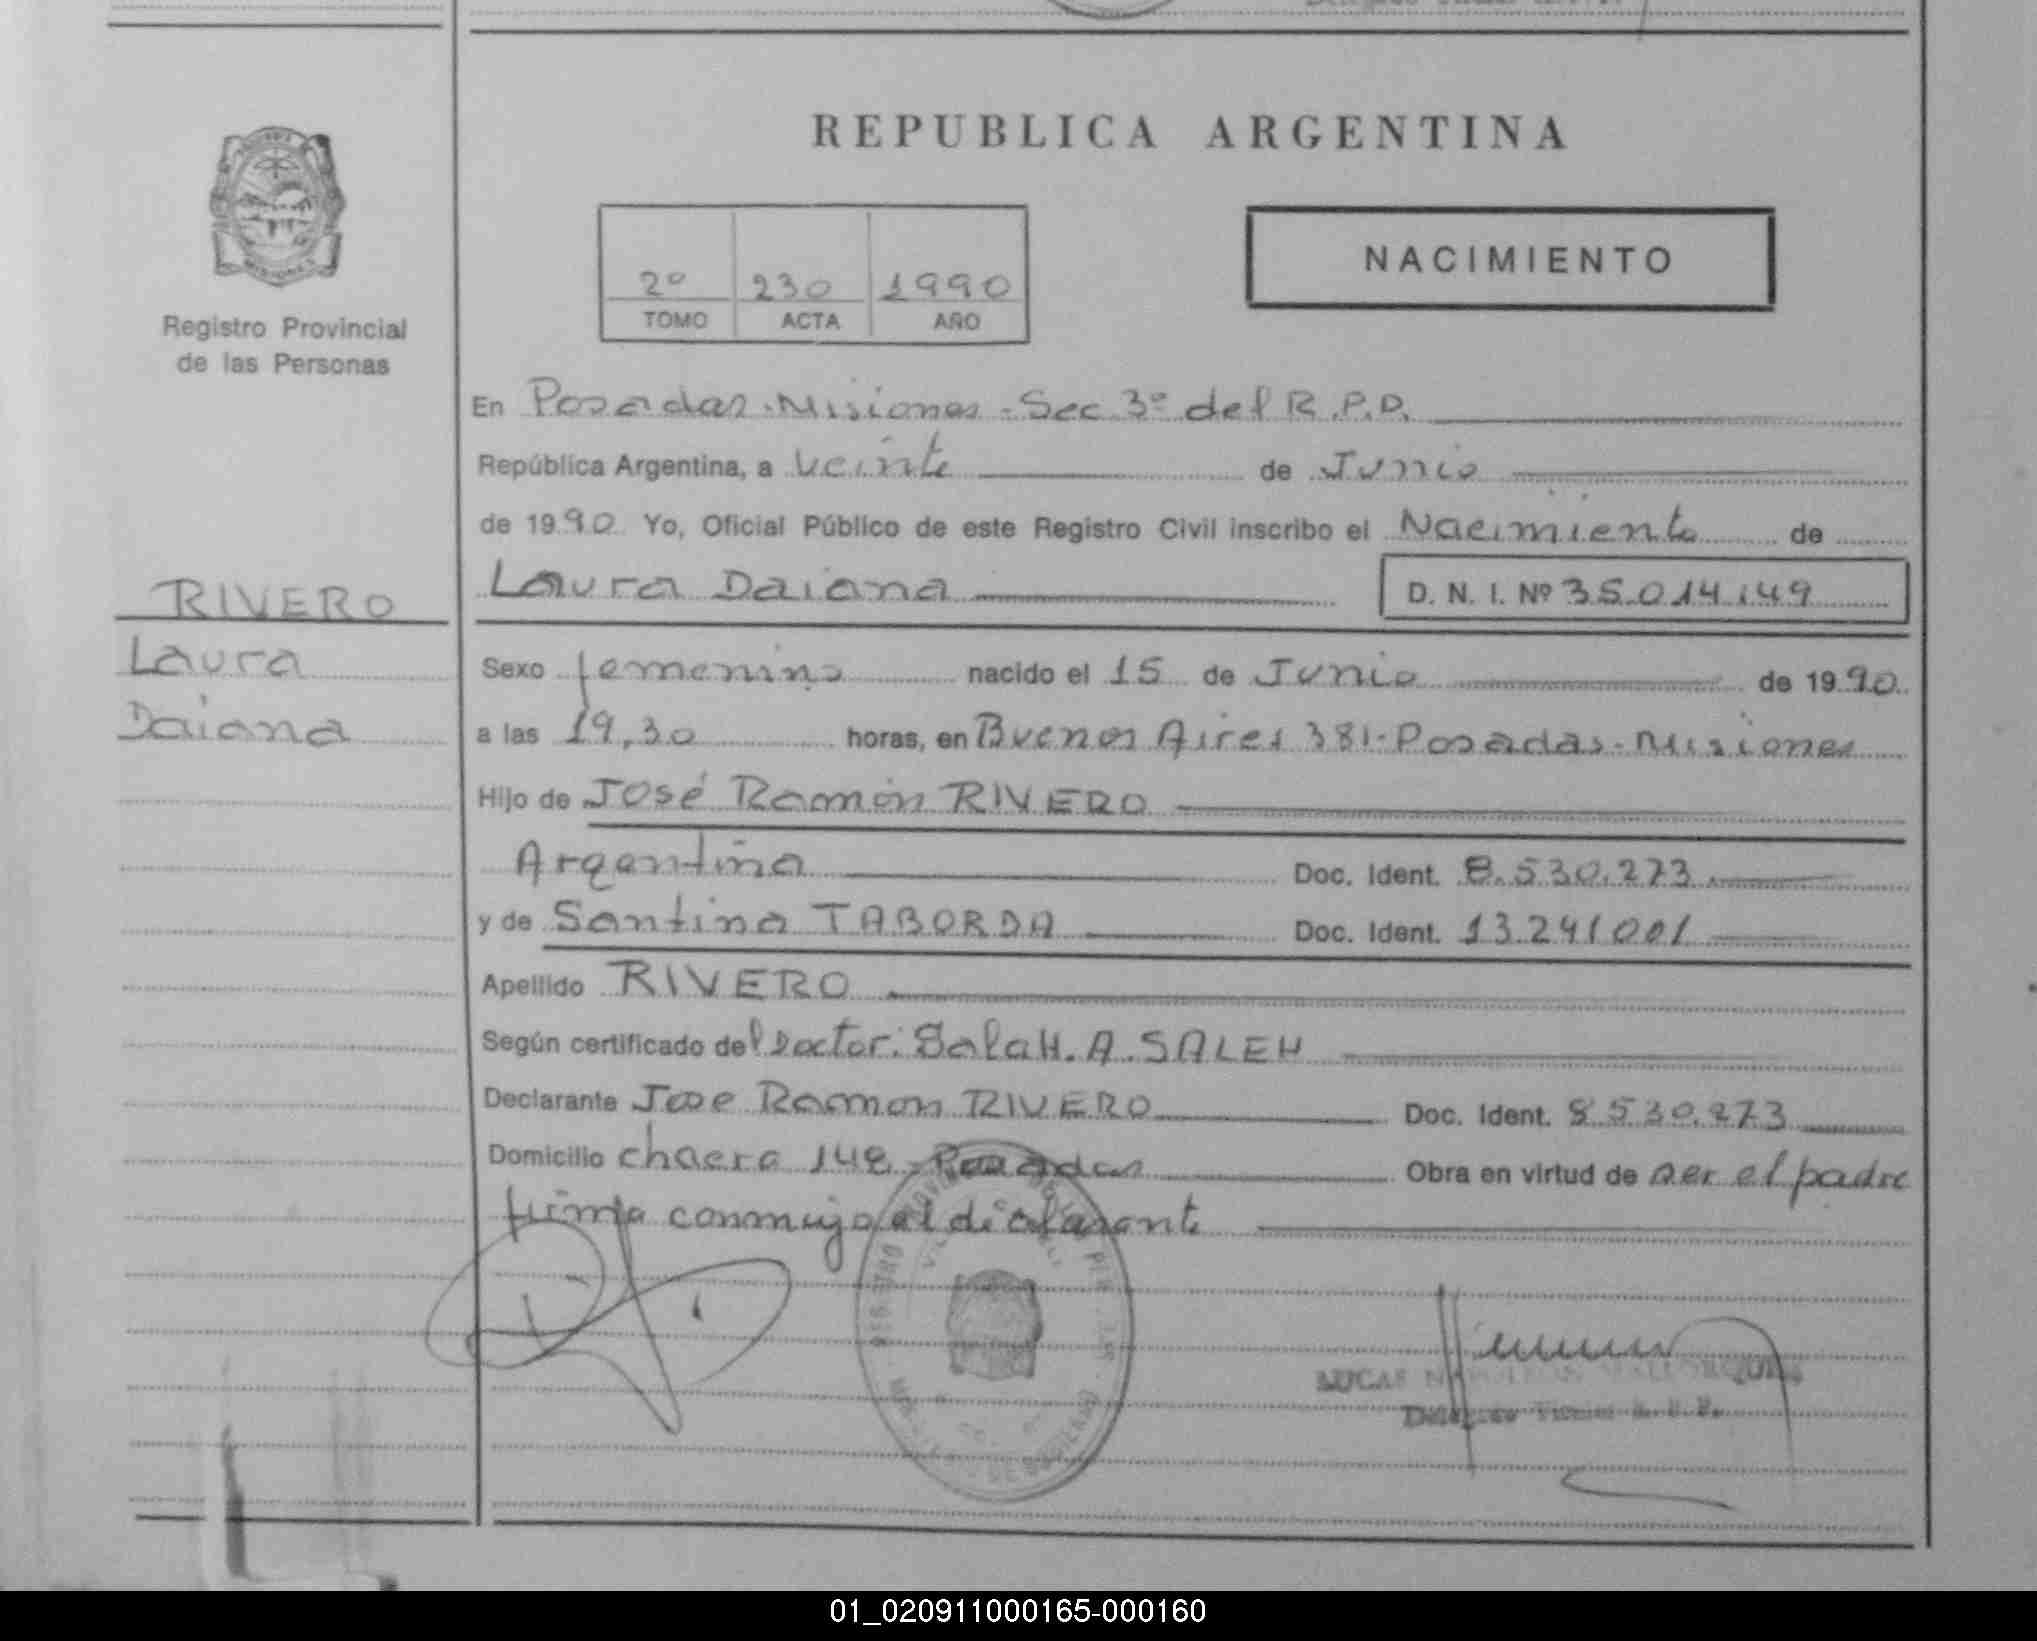 REPUBLICA ARGENTINA
NACIMIENTO
2º 230 1990
TOMO ACTA AÑO
MISIONES
Registro Provincial
de las Personas
RIVERO
Laura
Daiana
En Posadas-Misiones-Sec 3º del R.P.D.
República Argentina, a veinte de Junio
de 1990 Yo, Oficial Público de este Registro Civil inscribo el Nacimiento de
Laura Daiana D. N. I. Nº 35.014.149
Sexo femenino nacido el 15 de Junio de 1990
a las 19,30 horas, en Buenos Aires 381-Posadas-Misiones
Hijo de José Ramón RIVERO
Argentina Doc. Ident. 8.530.273
y de Santina TABORDA Doc. Ident. 13.241001
Apellido RIVERO
Según certificado del Doctor: Salah. A. SALEH
Declarante Jose Ramon RIVERO Doc. Ident. 8.530.273
Domicilio chacra 148 Posadas Obra en virtud de ser el padre
firma conmigo el declarante
LUCAS
01_020911000165-000160